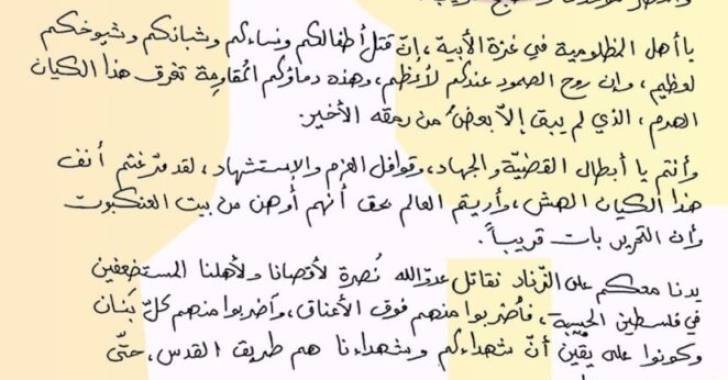 يا أهل المظلومية في غزة الأبية، إنّ قتل أطفالكم ونساءكم وشبانكم وشيوخكم
لعظيم، وإن روح الصمود عندكم لأعظم، وهذه دماؤكم المُقاوِمة تغرق هذا الكيان
الهرم، الذي لم يبق إلاّ بعضُ من رمقه الأخير.
وأنتم يا أبطال القضيّة والجهاد، وقوافل العزم والإستشهاد، لقد مرّغتم أنف
هذا الكيان الهش، وأريتم العالم بحق أنهم أوهن من بيت العنكبوت
وأن التحرير بات قريباً.
يدنا معكم على الزّناد نقاتل عدوّ الله نُصرة لأقصانا ولأهلنا المستضعفين
في فلسطين الحبيبة، فأضربوا منهم فوق الأعناق، وأضربوا منهم كلّ بَنان
وكونوا على يقين أنّ شهداءكم وشهداءنا هم طريق القدس، حتّى